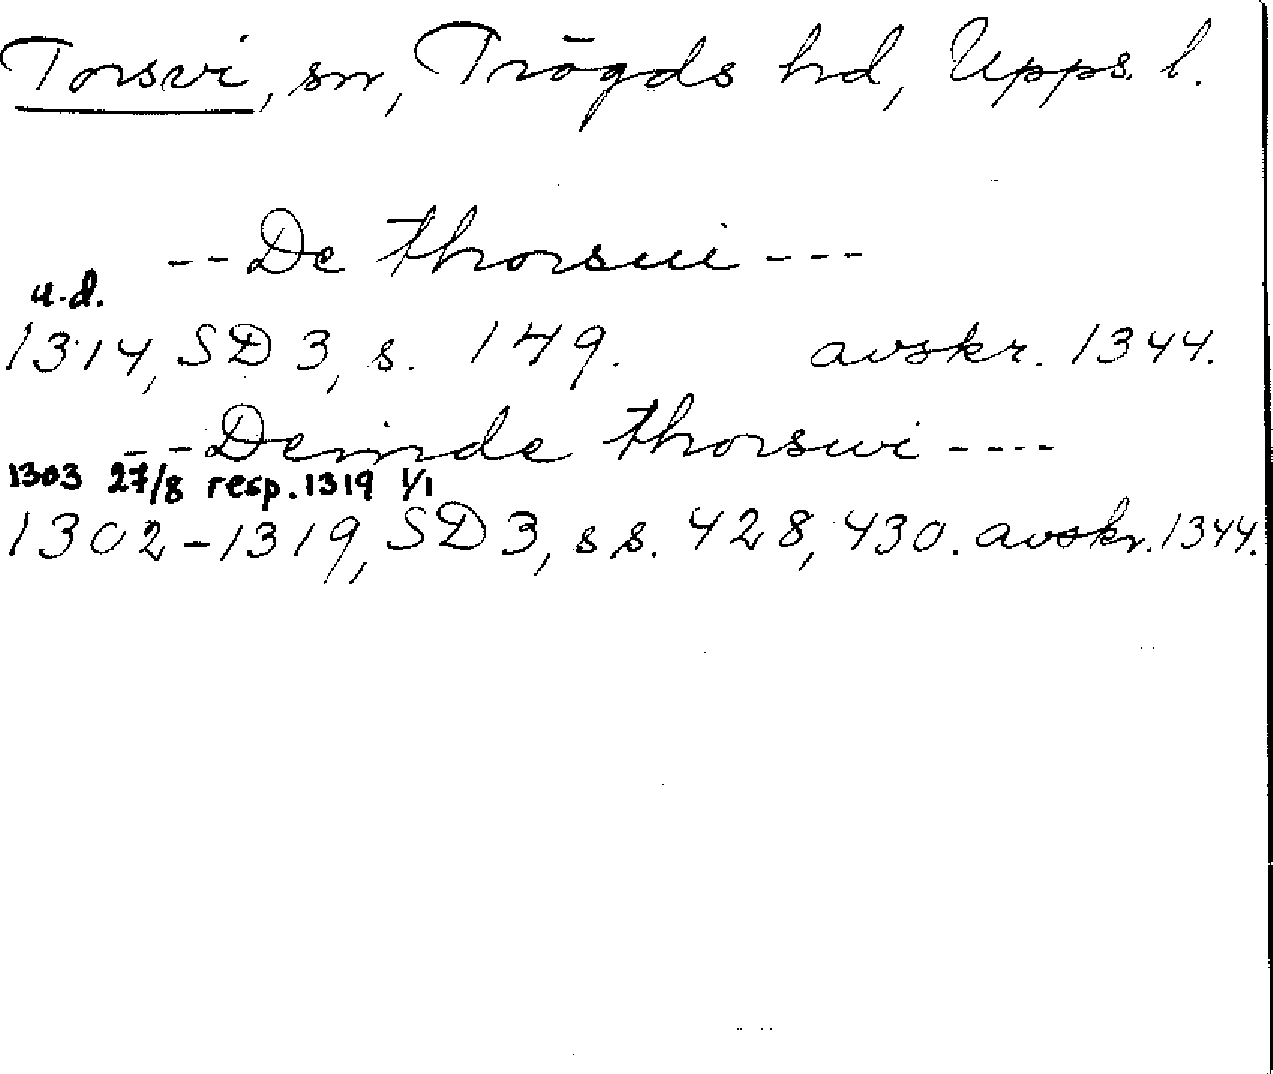 Torsvi, sn, Trögds hd, Upps. l.
-- De thorsui ---
u.d.
1314, SD 3, s. 149. avskr. 1344.
-- Deinde thorswi ----
1303 27/8 resp. 1319 1/1
1302-1319, SD 3, ss. 428, 430. avskr. 1344.